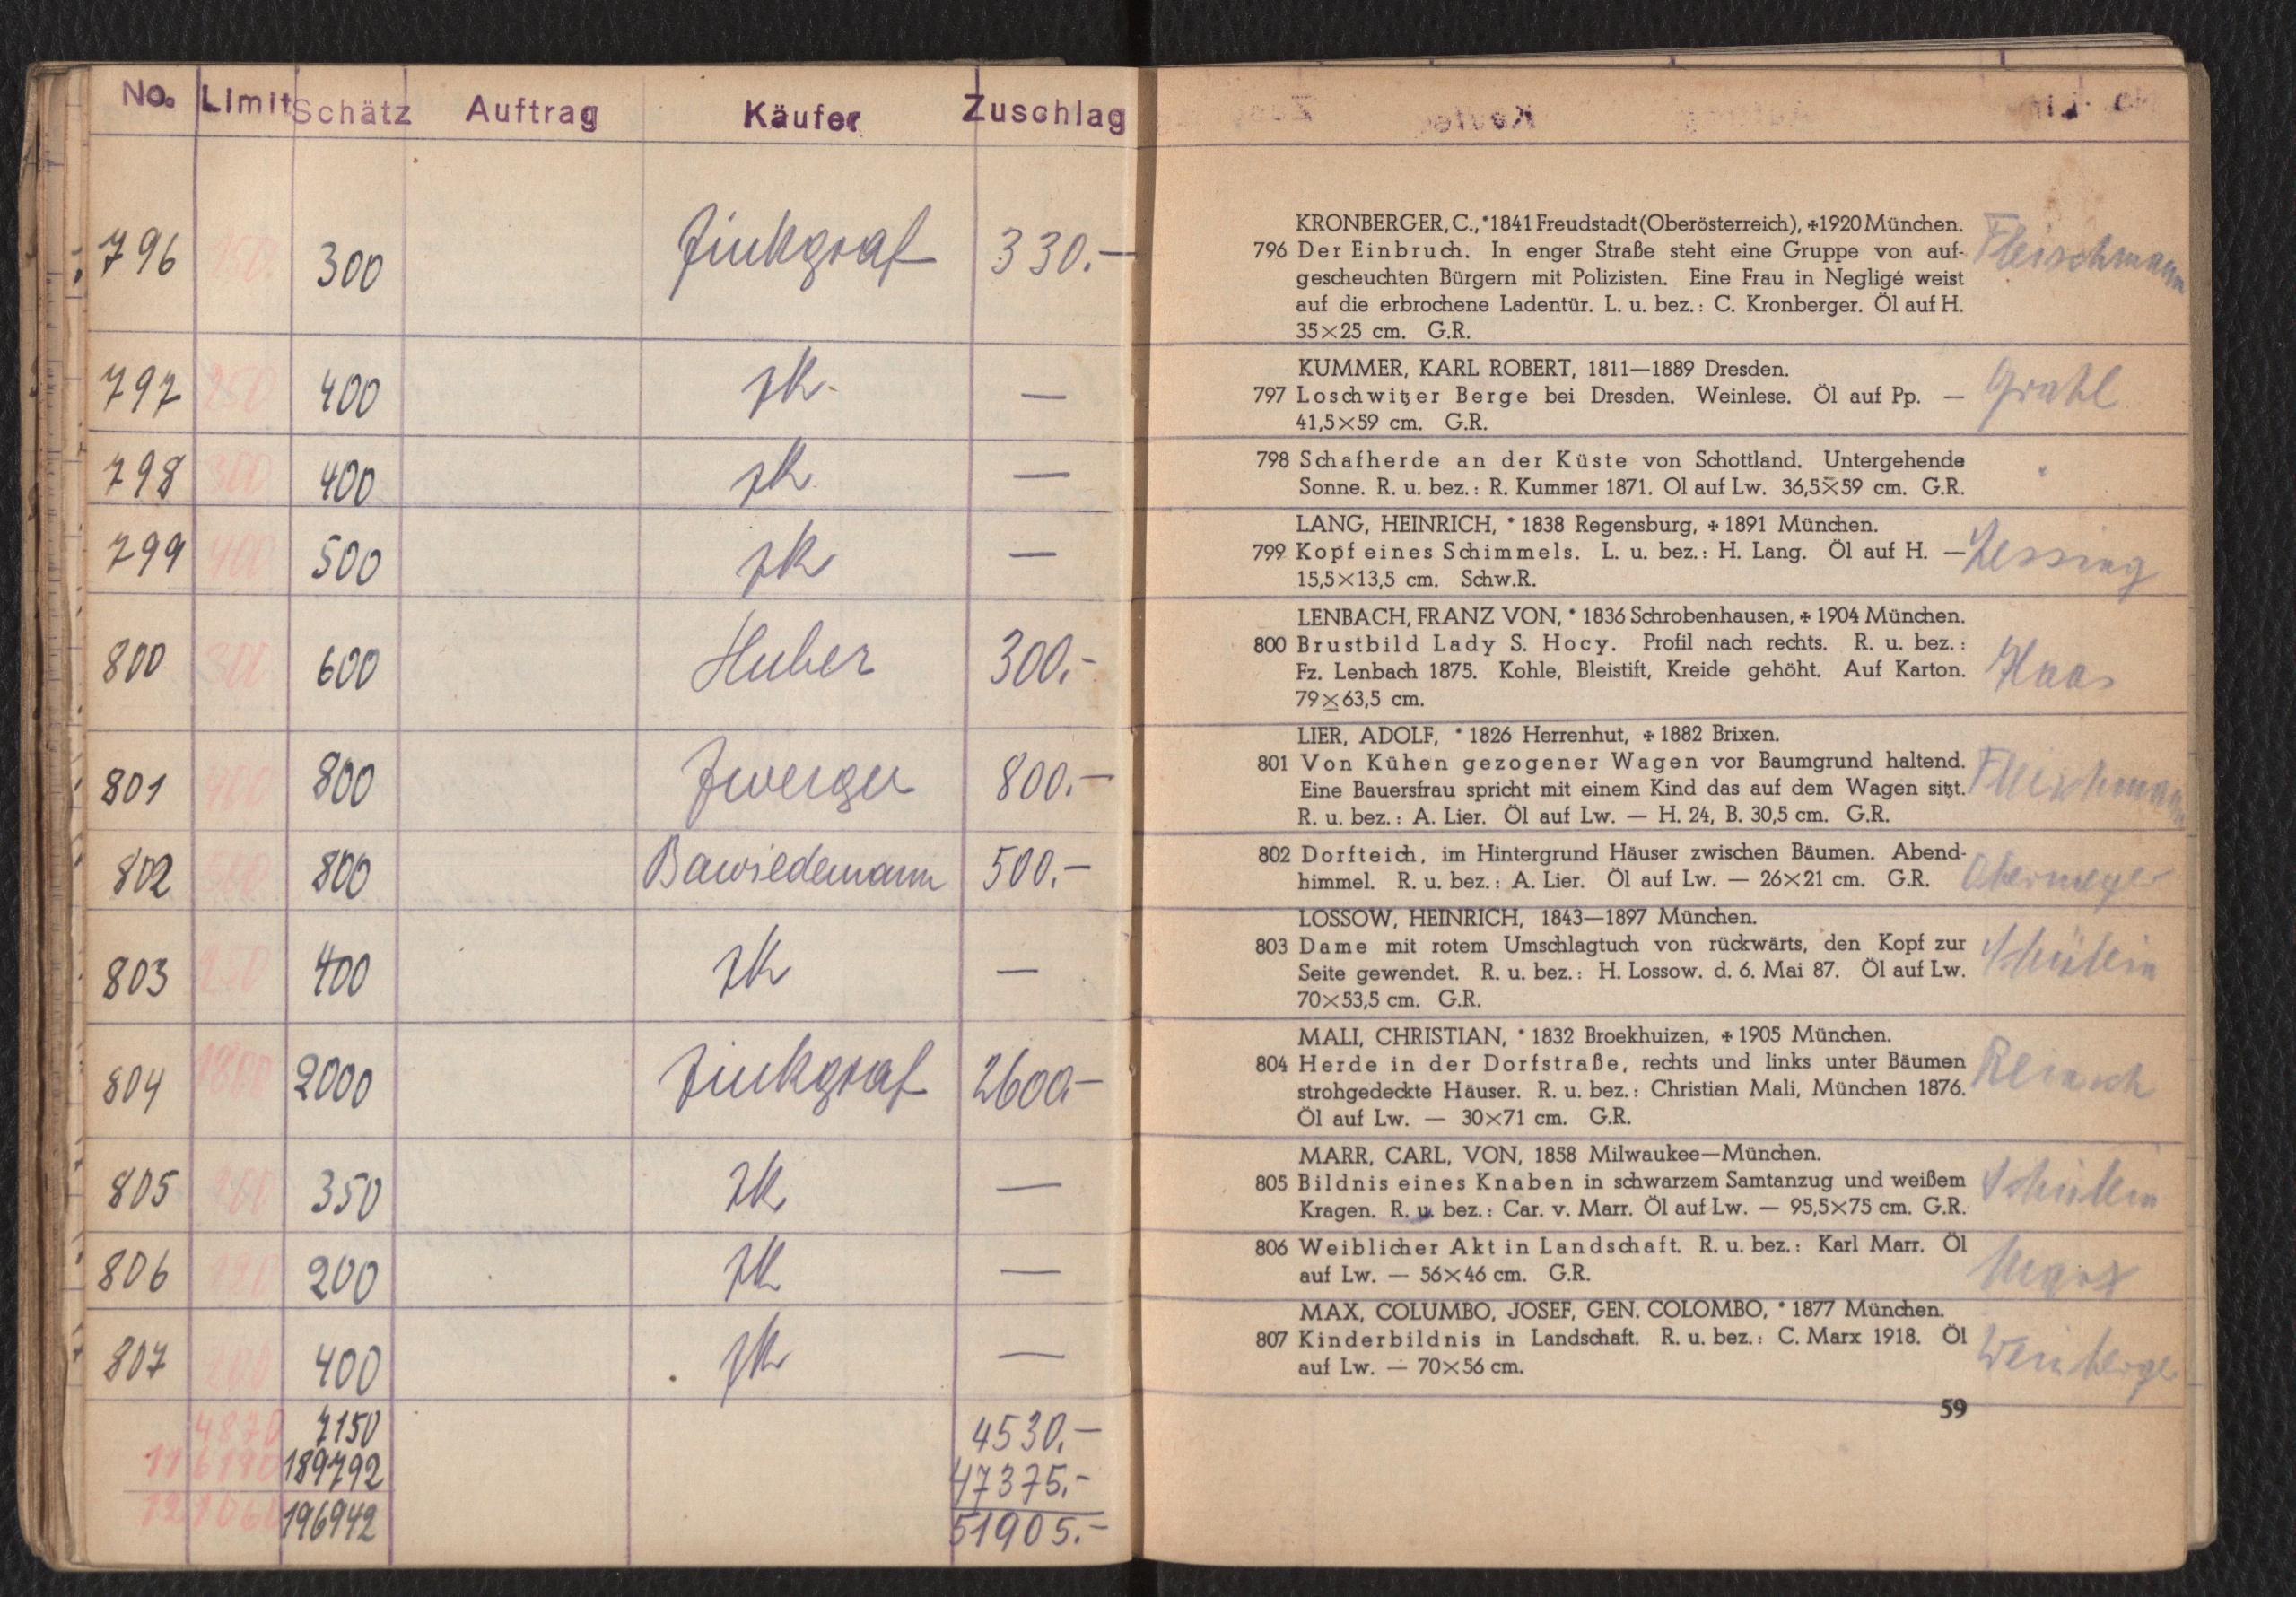 No. Limit Schätz Auftrag Käufer Zuschlag
796 300 Zinkgraf 330.—
797 250 400 zk. —
798 300 400 zk —
799 400 500 zk —
800 300 600 Huber 300.-
801 400 800 Zwerger 800.—
802 500 800 Bawiedemann 500.-
803 400 zk —
804 2000 Zinkgraf 2600.—
805 350 zk —
806 120 200 zk —
807 400 zk —
4870 7150 4530.—
116190 189792 47375.-
121060 196942 51905.-
KRONBERGER, C., *1841 Freudstadt (Oberösterreich), ✠1920 München.
796 Der Einbruch. In enger Straße steht eine Gruppe von auf- Fleischmann
gescheuchten Bürgern mit Polizisten. Eine Frau in Negligé weist
auf die erbrochene Ladentür. L. u. bez.: C. Kronberger. Öl auf H.
35×25 cm. G.R.
KUMMER, KARL ROBERT, 1811—1889 Dresden.
797 Loschwitzer Berge bei Dresden. Weinlese. Öl auf Pp. — Grahl
41,5×59 cm. G.R.
798 Schafherde an der Küste von Schottland. Untergehende
Sonne. R. u. bez.: R. Kummer 1871. Ol auf Lw. 36,5×59 cm. G.R.
LANG, HEINRICH, * 1838 Regensburg, ✠ 1891 München.
799 Kopf eines Schimmels. L. u. bez.: H. Lang. Öl auf H. — Lessing
15,5×13,5 cm. Schw.R.
LENBACH, FRANZ VON, * 1836 Schrobenhausen, ✠ 1904 München.
800 Brustbild Lady S. Hocy. Profil nach rechts. R. u. bez.:
Fz. Lenbach 1875. Kohle, Bleistift, Kreide gehöht. Auf Karton. Haas
79×63,5 cm.
LIER, ADOLF, * 1826 Herrenhut, ✠ 1882 Brixen.
801 Von Kühen gezogener Wagen vor Baumgrund haltend. Fleischmann
Eine Bauersfrau spricht mit einem Kind das auf dem Wagen sitzt.
R. u. bez.: A. Lier. Öl auf Lw. — H. 24, B. 30,5 cm. G.R.
802 Dorfteich, im Hintergrund Häuser zwischen Bäumen. Abend-
himmel. R. u. bez.: A. Lier. Öl auf Lw. — 26×21 cm. G.R. Obermeyer
LOSSOW, HEINRICH, 1843—1897 München.
803 Dame mit rotem Umschlagtuch von rückwärts, den Kopf zur Schülein
Seite gewendet. R. u. bez.: H. Lossow. d. 6. Mai 87. Öl auf Lw.
70×53,5 cm. G.R.
MALI, CHRISTIAN, * 1832 Broekhuizen, ✠ 1905 München.
804 Herde in der Dorfstraße, rechts und links unter Bäumen
strohgedeckte Häuser. R. u. bez.: Christian Mali, München 1876.
Öl auf Lw. — 30×71 cm. G.R.
MARR, CARL, VON, 1858 Milwaukee—München.
805 Bildnis eines Knaben in schwarzem Samtanzug und weißem Schülein
Kragen. R. u. bez.: Car. v. Marr. Öl auf Lw. — 95,5×75 cm. G.R.
806 Weiblicher Akt in Landschaft. R. u. bez.: Karl Marr. Öl
auf Lw. — 56×46 cm. G.R. Marx
MAX, COLUMBO, JOSEF, GEN. COLOMBO, * 1877 München.
807 Kinderbildnis in Landschaft. R. u. bez.: C. Marx 1918. Öl Weinberger
auf Lw. — 70×56 cm.
59